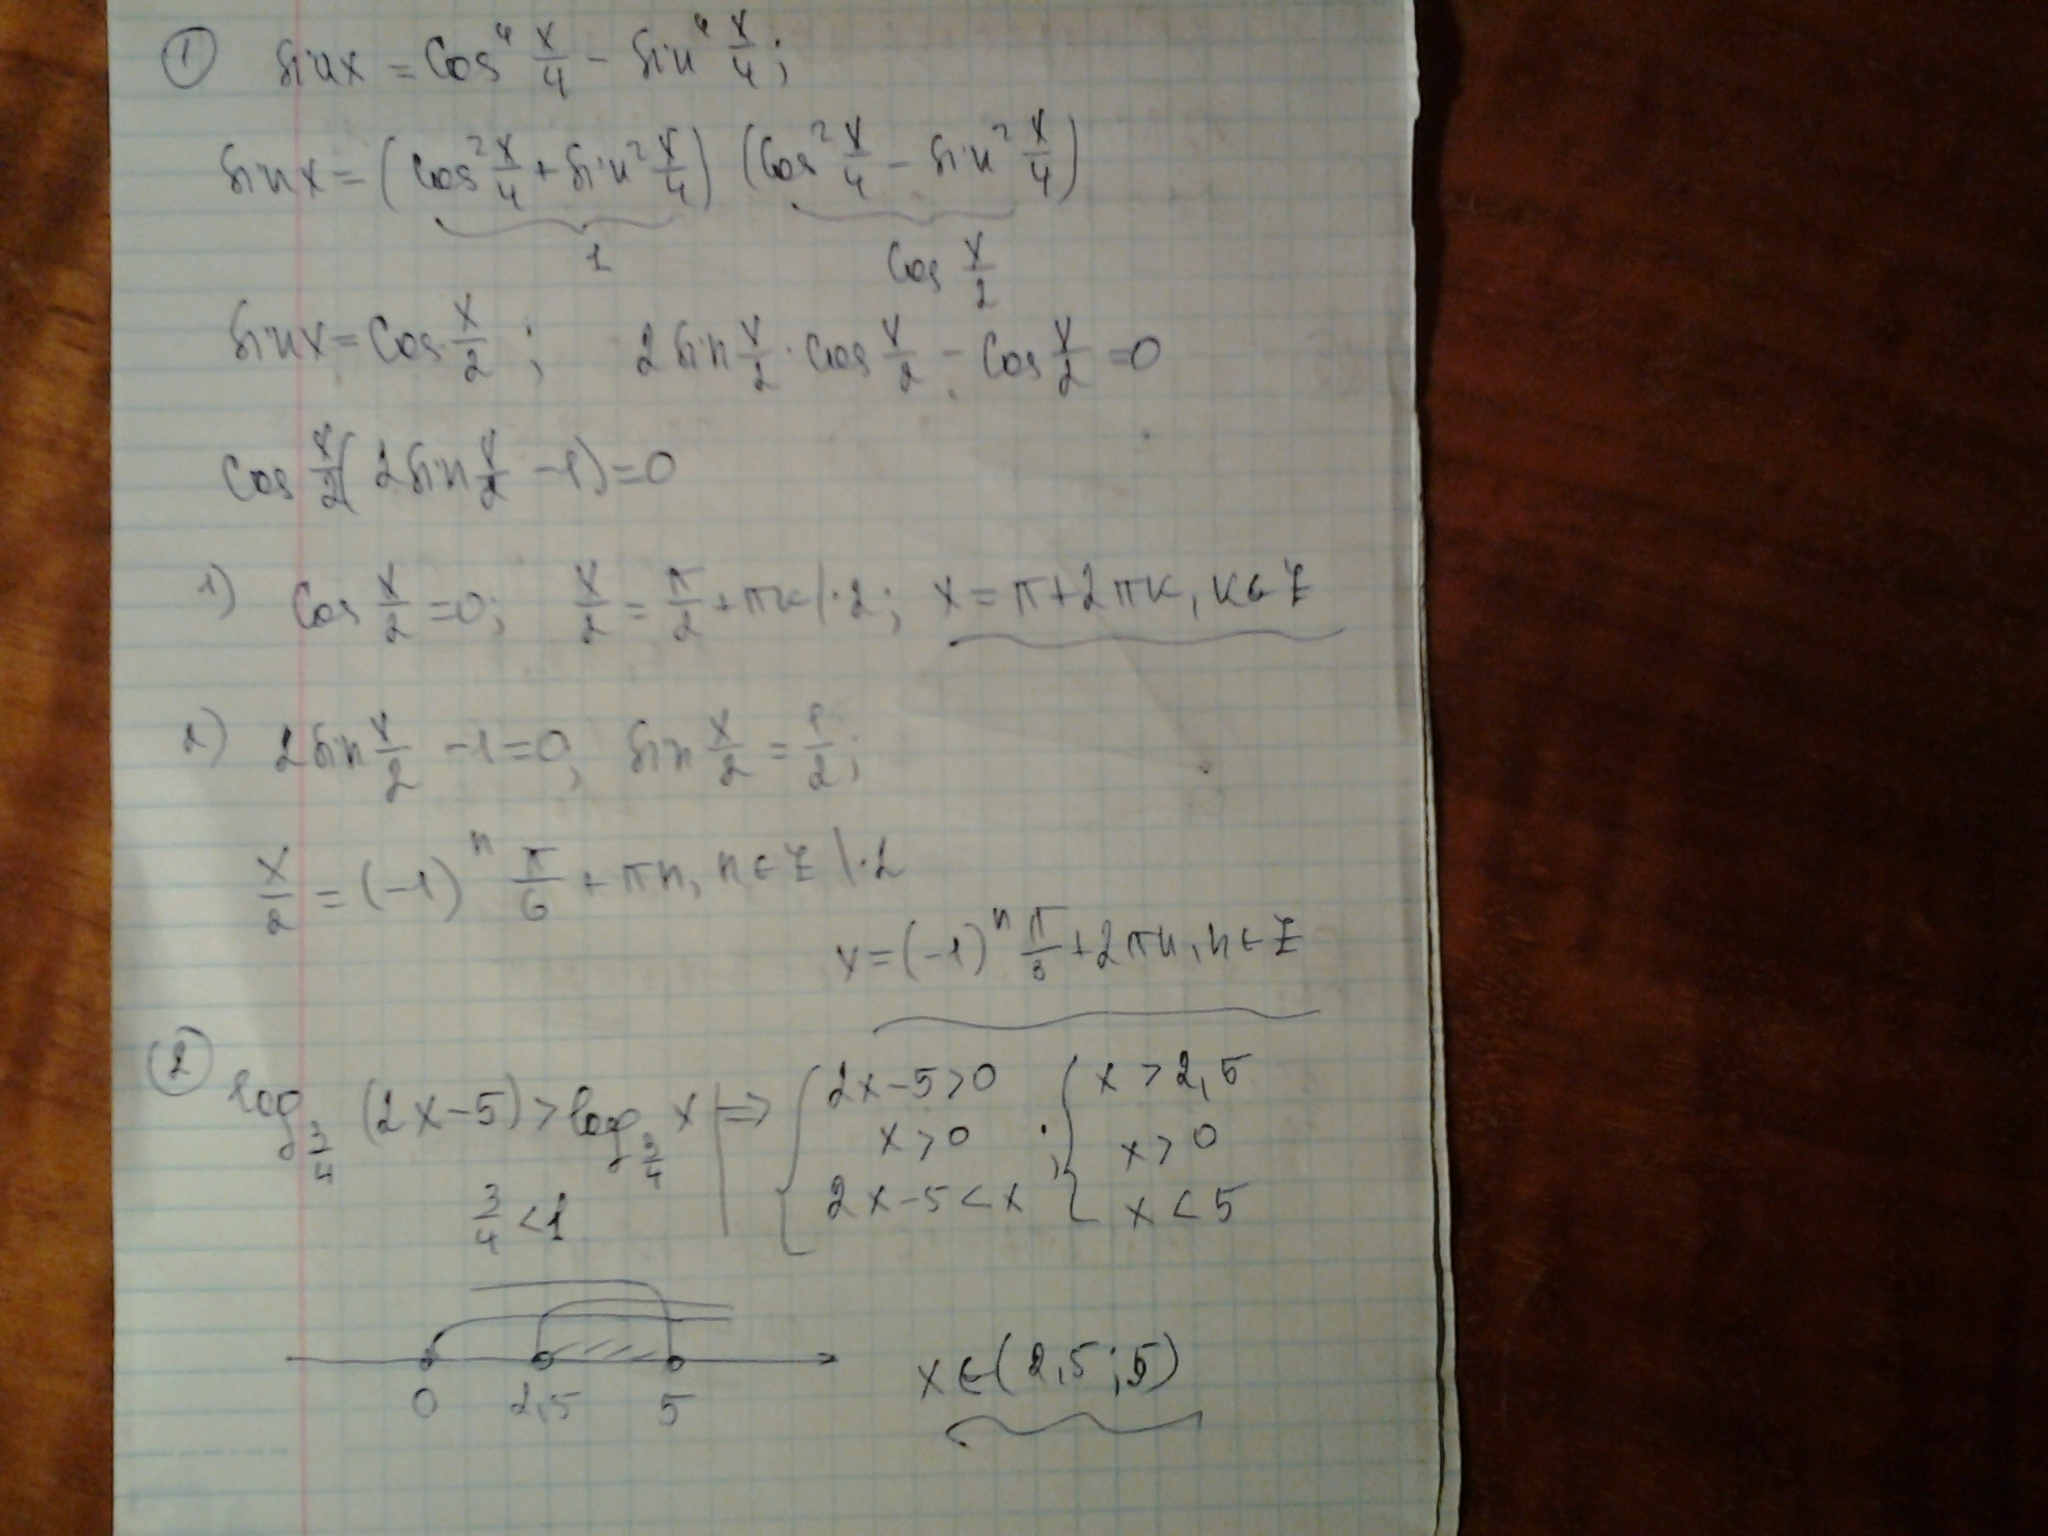 ① sin x = cos⁴ x/4 − sin⁴ x/4;
sin x = (cos² x/4 + sin² x/4) (cos² x/4 − sin² x/4)
1 cos x/2
sin x = cos x/2 ; 2 sin x/2 · cos x/2 − cos x/2 = 0
cos x/2 (2 sin x/2 − 1) = 0
1) cos x/2 = 0; x/2 = π/2 + πk |·2; x = π + 2πk, k ∈ Z
2) 2 sin x/2 − 1 = 0; sin x/2 = 1/2;
x/2 = (−1)ⁿ π/6 + πn, n ∈ Z |·2
x = (−1)ⁿ π/3 + 2πn, n ∈ Z
② log_{3/4} (2x − 5) > log_{3/4} x | ⇒ { 2x − 5 > 0 ; { x > 2,5
x > 0 x > 0
3/4 < 1 2x − 5 < x x < 5
0 2,5 5 x ∈ (2,5; 5)